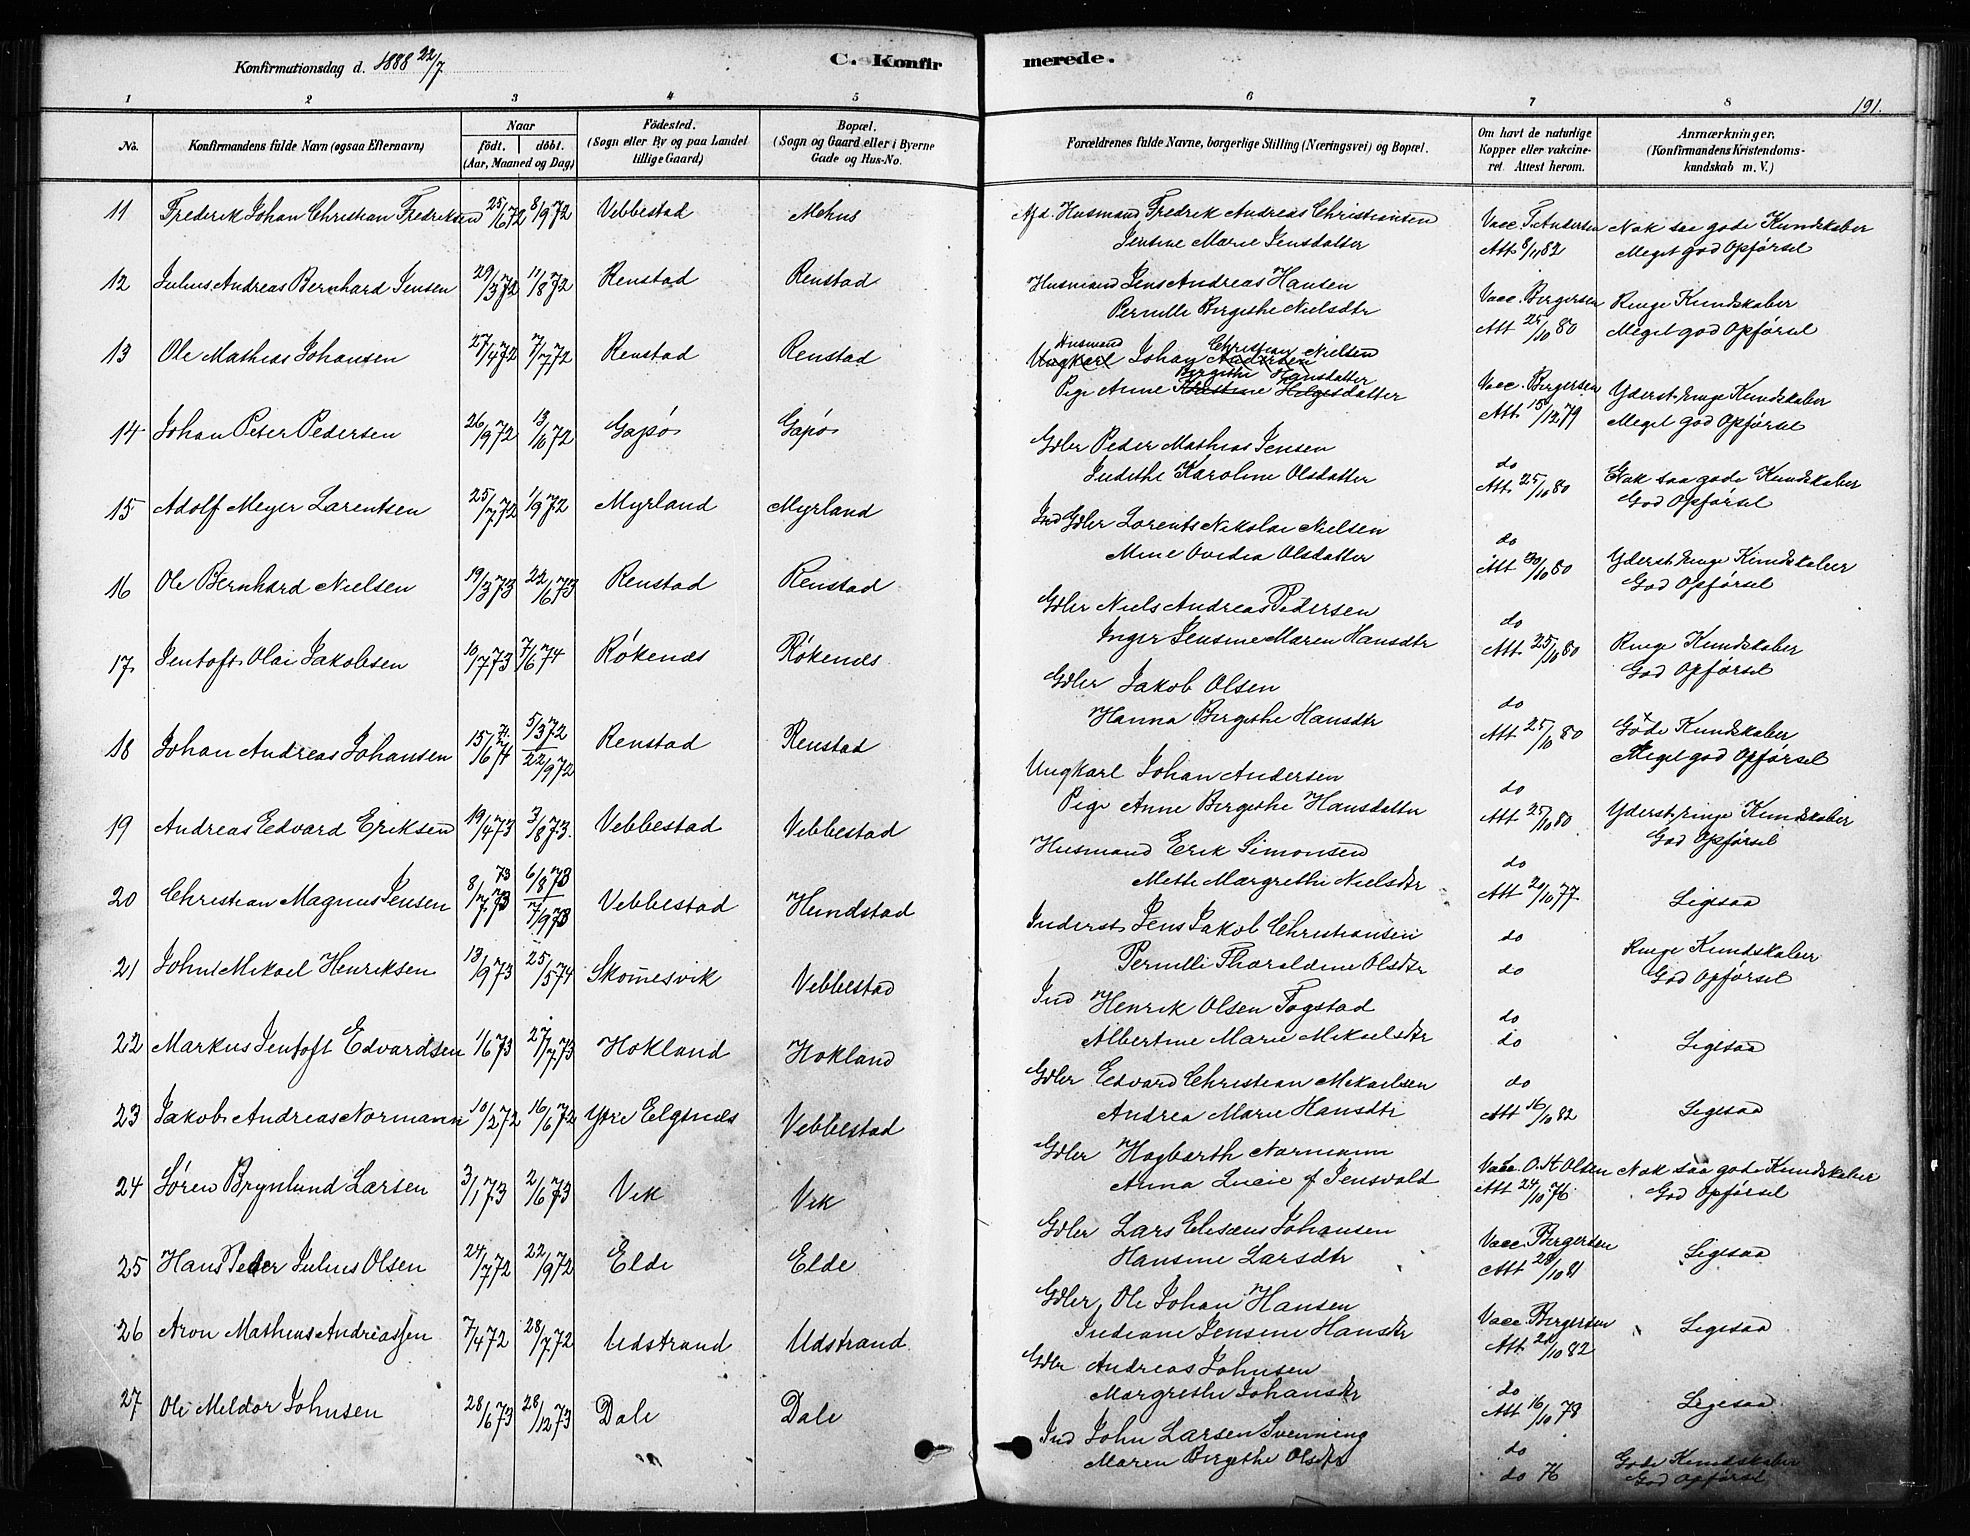 Konfirmationsdag d. 1888 22/7
C. Konfirmerede.
191.
1 2 3 4 5 6 7 8
No. | Konfirmandens fulde Navn (ogsaa Efternavn) | Naar født. døbt. (Aar, Maaned og Dag) | Fødested. (Sogn eller By og paa Landet tillige Gaard) | Bopæl. (Sogn og Gaard eller i Byerne Gade og Hus-No. | Forældrenes fulde Navne, borgerlige Stilling (Næringsvei) og Bopæl. | Om havt de naturlige Kopper eller vakcineret. Attest herom. | Anmærkninger. (Konfirmandens Kristendomskundskab m. V.)
11 Frederik Johan Christian Fredriksen 25/6 72 8/9 72 Vebbestad Mehus Afd. Husmand Fredrik Andreas Christiansen Vacc. T. Andersen Nok saa gode Kundskaber
Jensine Marie Jensdatter Att 8/11 82 Meget god Opførsel
12 Julius Andreas Bernhard Jensen 29/3 72 11/8 72 Renstad Renstad Husmand Jens Andreas Hansen Vacc. Bergersen Ringe Kundskaber
Pernille Bergithe Nielsdtr Att 25/10 80 Meget god Opførsel
13 Ole Mathias Johansen 27/4 72 7/7 72 Renstad Renstad Husmand Ungkarl Johan Christian Nielsen Andersen Vacc. Bergersen Yderst ringe Kundskaber
Pige Anne Bergithe Hansdatter Kristine Helgesdatter Att 15/12 79 Meget god Opførsel
14 Johan Peter Pedersen 26/9 72 13/10 72 Gapø Gapø Gdbr Peder Mathias Jensen do Nok saa gode Kundskaber
Judithe Karoline Olsdatter Att 25/10 80 God Opførsel
15 Adolf Meyer Larentsen 25/7 72 1/9 72 Myrland Myrland Ind Gdbr Lorents Nikolai Nielsen do Yderst ringe Kundskaber
Mine Ovedia Olsdatter Att 30/10 80 God Opførsel
16 Ole Bernhard Nielsen 19/3 73 22/6 73 Renstad Renstad Gdbr Niels Andreas Pedersen do Ringe Kundskaber
Inger Jensine Maren Hansdtr Att 25/10 80 God Opførsel
17 Jentoft Olai Jakobsen 10/7 73 7/6 74 Røkenæs Røkenæs Gdbr Jakob Olsen do Gode Kundskaber
Hanna Bergithe Hansdtr Att 25/10 80 Meget god Opførsel
18 Johan Andreas Johansen 15/6 71 5/3 72 22/9 72 Renstad Renstad Ungkarl Johan Andersen do Yderst ringe Kundskaber
Pige Anne Bergithe Hansdatter Att 25/10 80 God Opførsel
19 Andreas Edvard Eriksen 19/4 73 3/8 73. Vebbestad Vebbestad Husmand Erik Simonsen do Ligesaa
Mette Margrethe Nielsdtr Att 20/10 77
20 Christian Magnus Jensen 8/7 73 73 6/8 73 7/9 73 Vebbestad Hundstad Inderst Jens Jakob Christiansen do Ringe Kundskaber
Pernille Tharaldine Olsdtr do God Opførsel
21 John Mikael Henriksen 13/9 73 25/5 74 Skomesvik Vebbestad Ind Henrik Olsen Fogstad do Ligesaa
Albertine Marie Mikaelsdtr do
22 Markus Jentoft Edvardsen 1/6 73 27/7 73 Hokland Hokland Gdbr Edvard Christian Mikaelsen do Ligesaa
Andrea Marie Hansdtr Att 16/10 82
23 Jakob Andreas Normann 10/2 72 16/6 72 Ytre Elgsnæs Vebbestad Gdbr Hagbarth Normann Vacc. O. K Olsen Nok saa gode Kundskaber
Anna Lucie f Jensvold Att 24/10 76 God Opførsel
24 Søren Brynlund Larsen 3/1 73 2/6 73 Vik Vik Gdbr Lars Elisæus Johansen Vacc. Bergersen Ligesaa
Hansine Larsdtr Att 28/10 81
25 Hans Peder Julius Olsen 24/7 72 22/9 72 Elde Elde Gdbr Ole Johan Hansen Vacc. Bergersen Ligesaa
Indiane Jensine Hansdtr Att 21/10 82
26 Aron Mathias Andreassen 7/4 72 28/7 72 Udstrand Udstrand Gdbr Andreas Johnsen do Ligesaa
Margrethe Johansdtr Att 16/10 78
27 Ole Meldor Johnsen 28/6 73 28/12 73 Dale Dale Ind John Larsen Svenning do Gode Kundskaber
Maren Bergithe Olsdtr do 76 God Opførsel